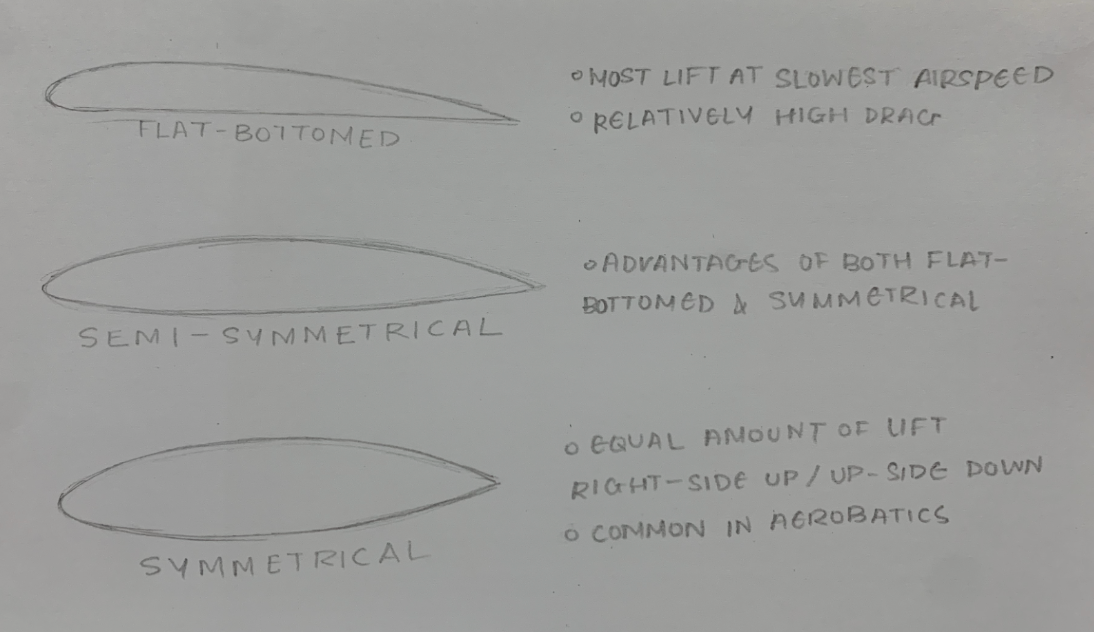 FLAT-BOTTOMED
○ MOST LIFT AT SLOWEST AIRSPEED
○ RELATIVELY HIGH DRAG
SEMI-SYMMETRICAL
○ ADVANTAGES OF BOTH FLAT-
BOTTOMED & SYMMETRICAL
SYMMETRICAL
○ EQUAL AMOUNT OF LIFT
RIGHT-SIDE UP / UP-SIDE DOWN
○ COMMON IN AEROBATICS